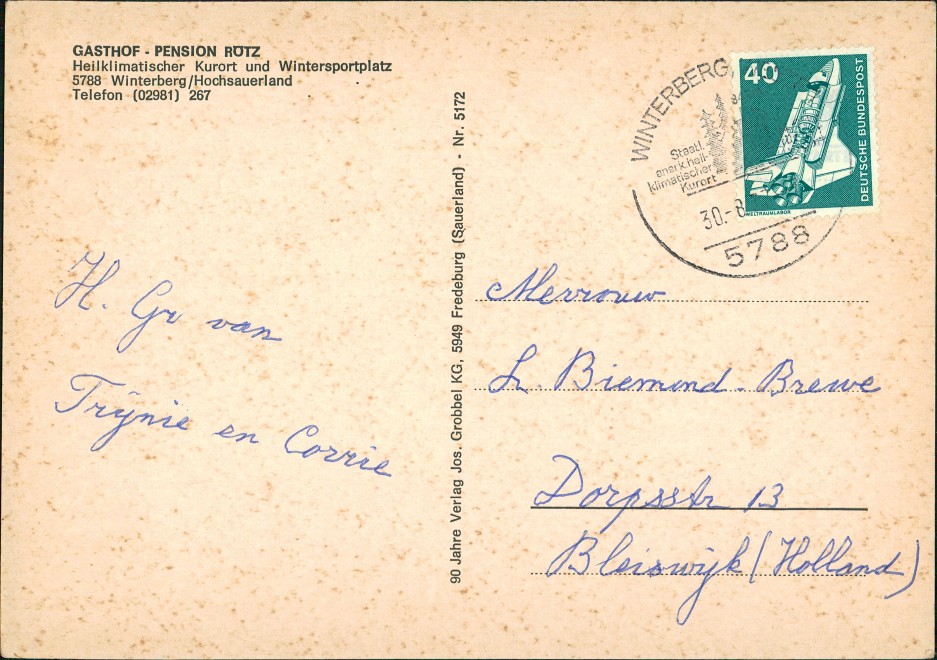 GASTHOF - PENSION RÖTZ
Heilklimatischer Kurort und Wintersportplatz
5788 Winterberg/Hochsauerland
Telefon (02981) 267
90 Jahre Verlag Jos. Grobbel KG, 5949 Fredeburg (Sauerland) - Nr. 5172
WINTERBERG,
Staatl.
anerk. heil-
klimatischer
Kurort
30.-8
5788
40
DEUTSCHE BUNDESPOST
WELTRAUMLABOR
H. Gr van
Trijnie en Corrie
Mevrouw
L. Biemond - Brewe
Dorpsstr 13
Bleiswijk (Holland)